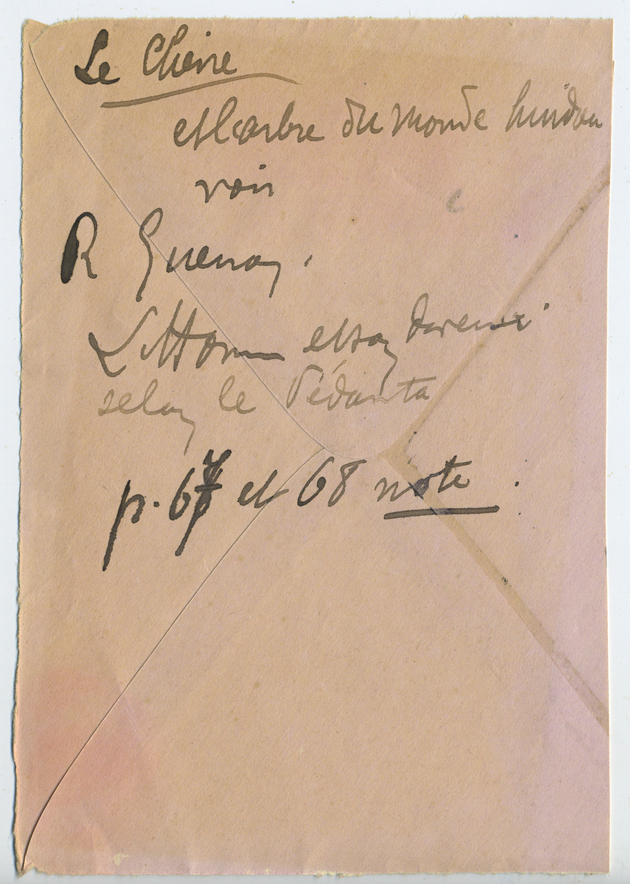 Le Chêne
et l'arbre du monde hindou
voir
R Guenon.
L'Homme et son devenir
selon le Védanta
p. 67 et 68 note.